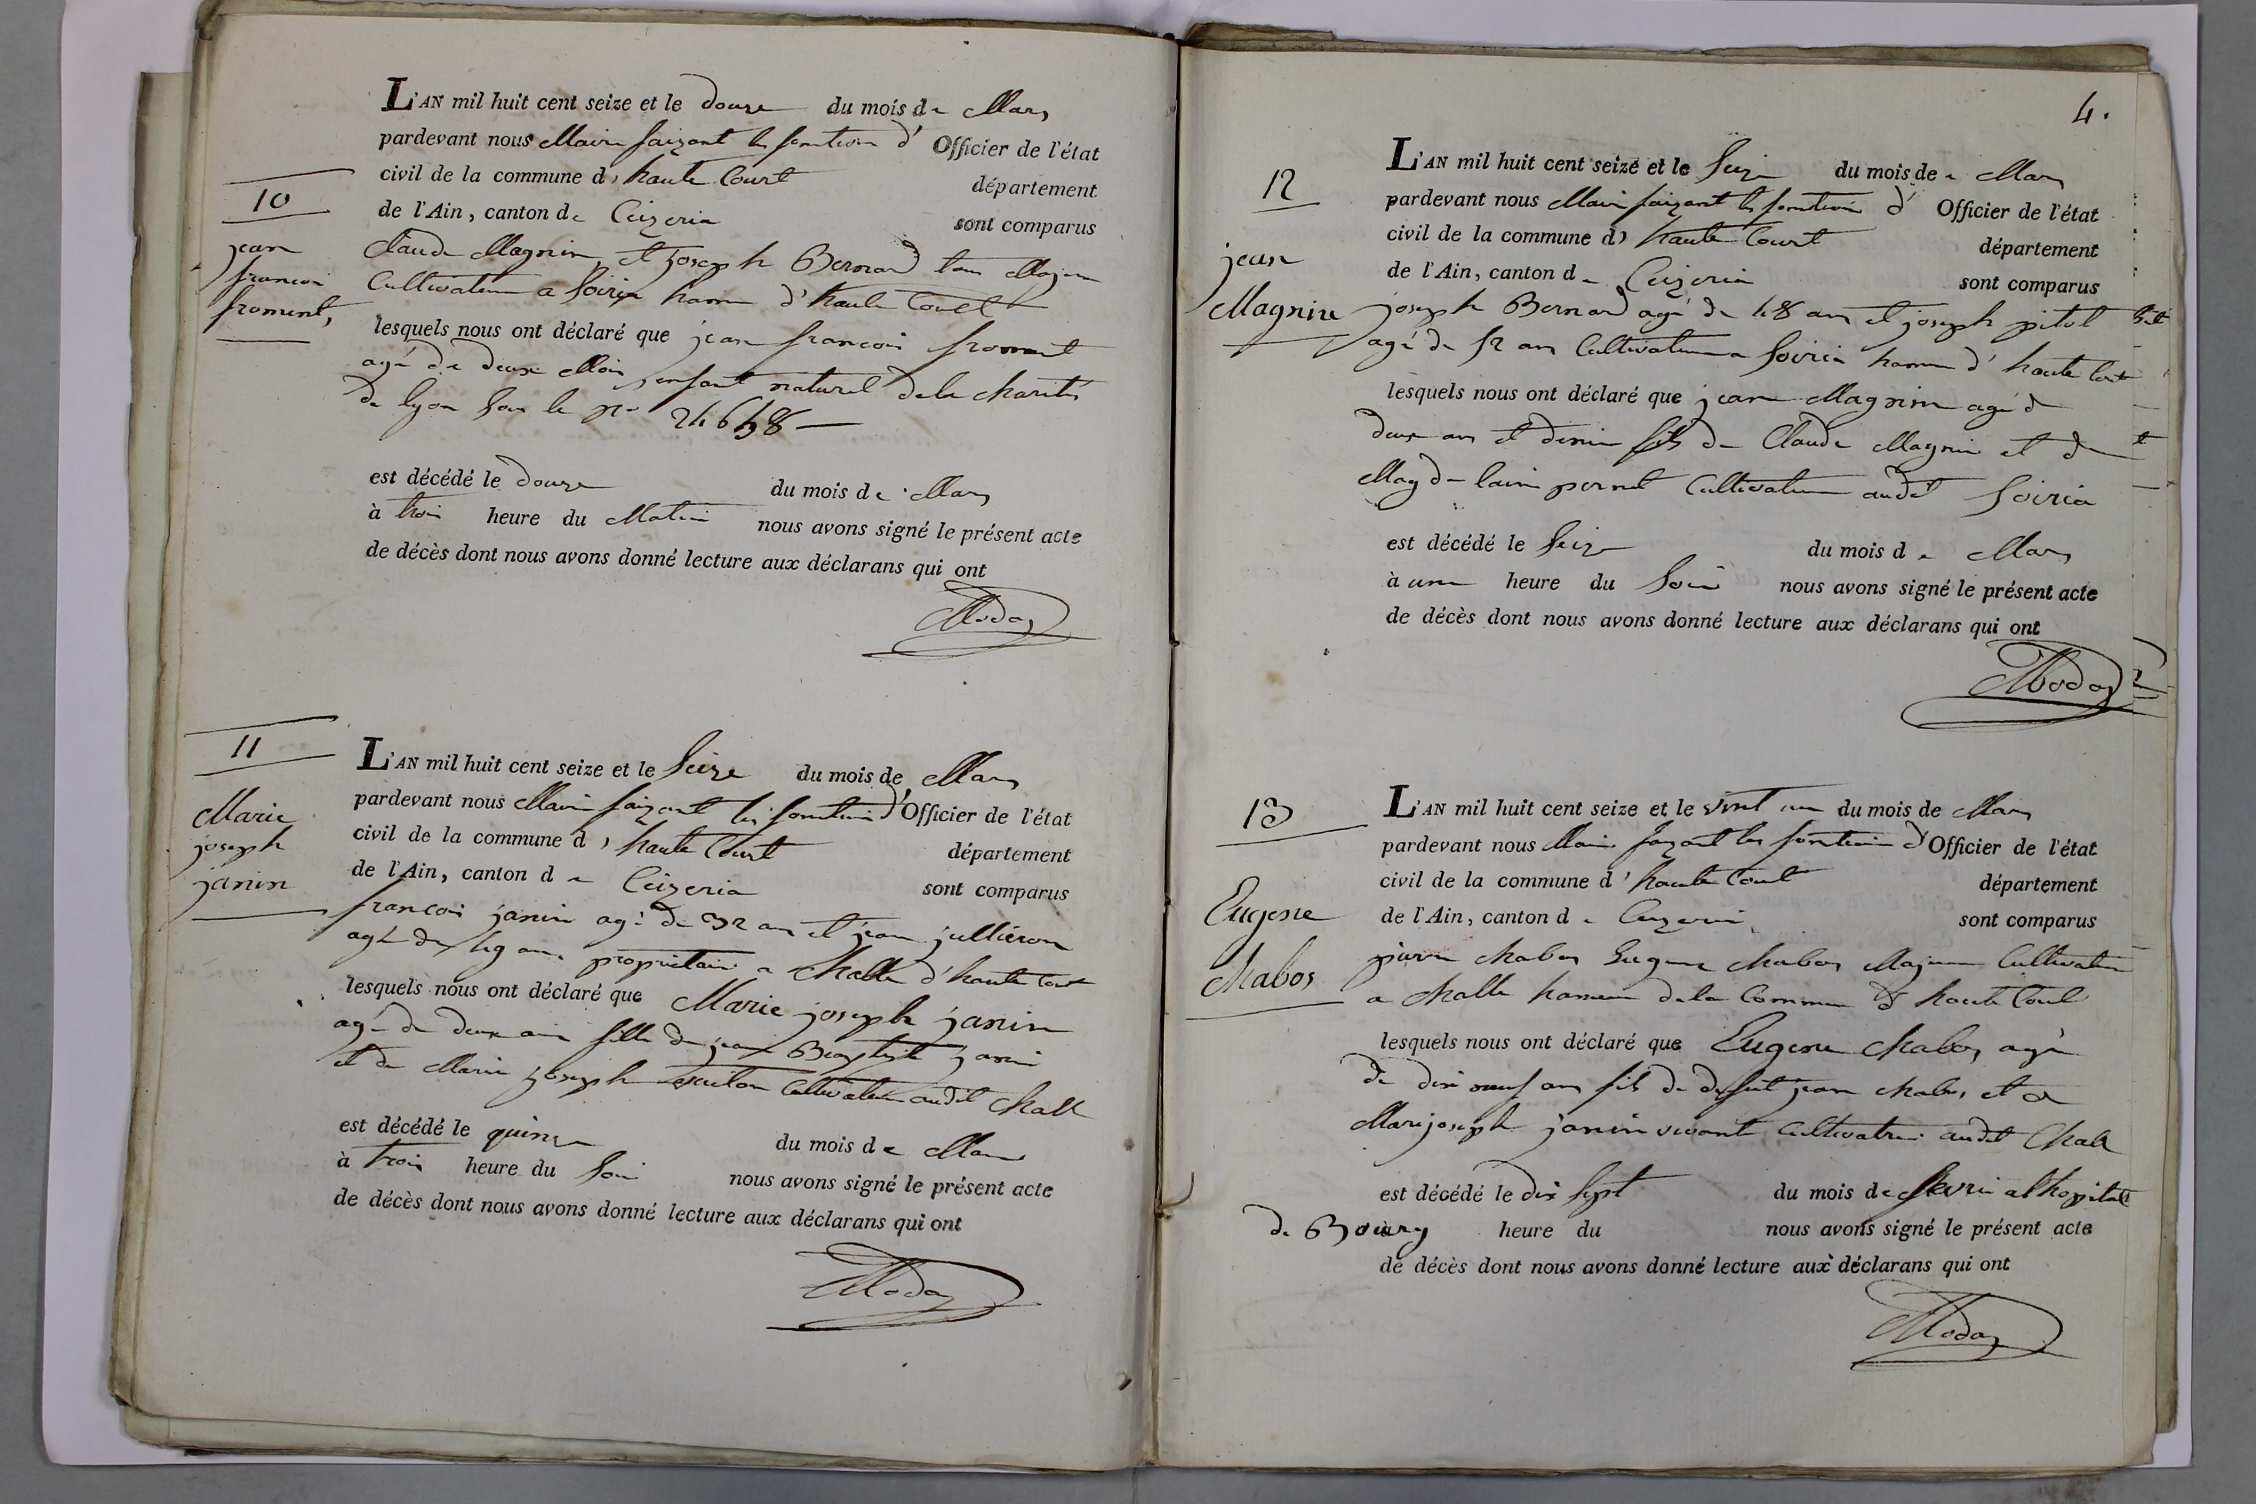 10
jean
francoi
froment,
L'AN mil huit cent seize et le douze du mois de Mars
pardevant nous Maire faizant les fonction d' Officier de l'état
civil de la commune d, haute Court département
de l'Ain, canton de Ceizeria sont comparus
Claude Magnin et Joseph Bernard tous Majeur
Cultivateur a Soiria hameau d'haute Court
lesquels nous ont déclaré que jean francoi froment
agé de deux Moi, enfant naturel de la charité
de lyon sous le no 24648
est décédé le douze du mois de Mars
à troi heure du Matin nous avons signé le présent acte
de décès dont nous avons donné lecture aux déclarans qui ont
Moday
11
Marie
joseph
janin
L'AN mil huit cent seize et le Seize du mois de Mars
pardevant nous Maire faizant les fonction d'Officier de l'état
civil de la commune d, haute Court département
de l'Ain, canton de Ceizeria sont comparus
francoi janin agé de 32 an et jean jullieron
agé de 49 an, propriétaire a Challe d'haute Court
lesquels nous ont déclaré que Marie joseph janin
agé de deux an fille de jean Baptiste janin
et de Marie joseph Cultivateur audit Chall
est décédé le quinze du mois de Mars
à troi heure du Soir nous avons signé le présent acte
de décès dont nous avons donné lecture aux déclarans qui ont
Moday
4.
12
jean
Magnin
L'AN mil huit cent seize et le Seize du mois de Mars
pardevant nous Maire faizant les fonction d' Officier de l'état
civil de la commune d, haute Court département
de l'Ain, canton de Ceizeria sont comparus
joseph Bernard agé de 48 an et joseph pitol
agé de 52 an Cultivateur a Soiria hameau d'haute Court
lesquels nous ont déclaré que jean Magnin agé de
deux an et demie fils de Claude Magnin et de
Magdelaine pernet Cultivateur audit Soiria
est décédé le Seize du mois de Mars
à une heure du Soir nous avons signé le présent acte
de décès dont nous avons donné lecture aux déclarans qui ont
Moday
13
Eugene
Chabos
L'AN mil huit cent seize et le vint un du mois de Mars
pardevant nous Maire faizant les fonction d'Officier de l'état
civil de la commune d'haute Court département
de l'Ain, canton de Ceizeria sont comparus
pierre Chabos Eugene Chabos Majeur Cultivateur
a Challe hameau de la Commune d haute Court
lesquels nous ont déclaré que Eugene Chabos agé
de dix neuf an fils de defunt jean Chabos et de
Marie joseph janin vivante Cultivatrice audit Chall
est décédé le dix Sept du mois de fevrie a l hopital
de Bourg heure du nous avons signé le présent acte
de décès dont nous avons donné lecture aux déclarans qui ont
Moday